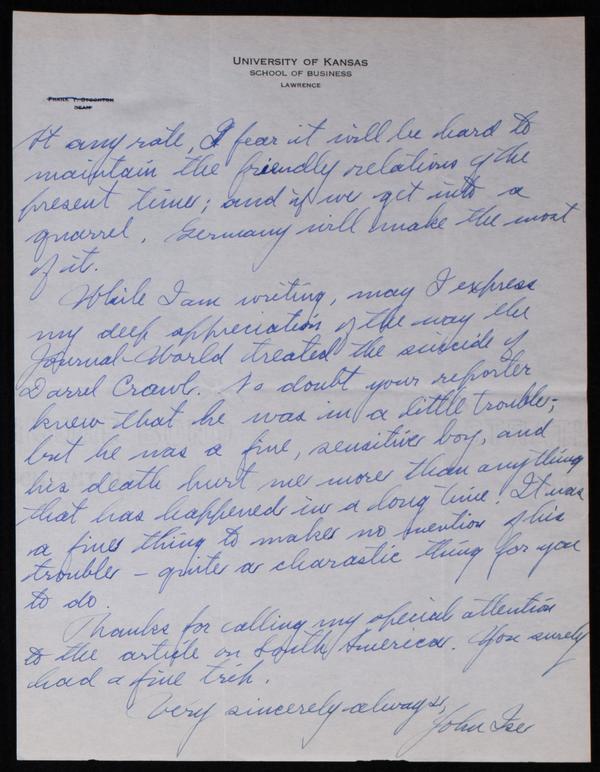 UNIVERSITY OF KANSAS
SCHOOL OF BUSINESS
LAWRENCE
FRANK T. STOCKTON
DEAN
At any rate, I fear it will be hard to
maintain the friendly relations of the
present time; and if we get into a
quarrel, Germany will make the most
of it.
While I am writing, may I express
my deep appreciation of the way the
Journal-World treated the suicide of
Darrel Crawl. No doubt your reporter
knew that he was in a little trouble;
but he was a fine, sensitive boy, and
his death hurt me more than anything
that has happened in a long time. It was
a fine thing to make no mention of his
trouble – quite a charastic thing for you
to do.
Thanks for calling my special attention
to the article on South America. You surely
had a fine trip.
Very sincerely always,
John Ise